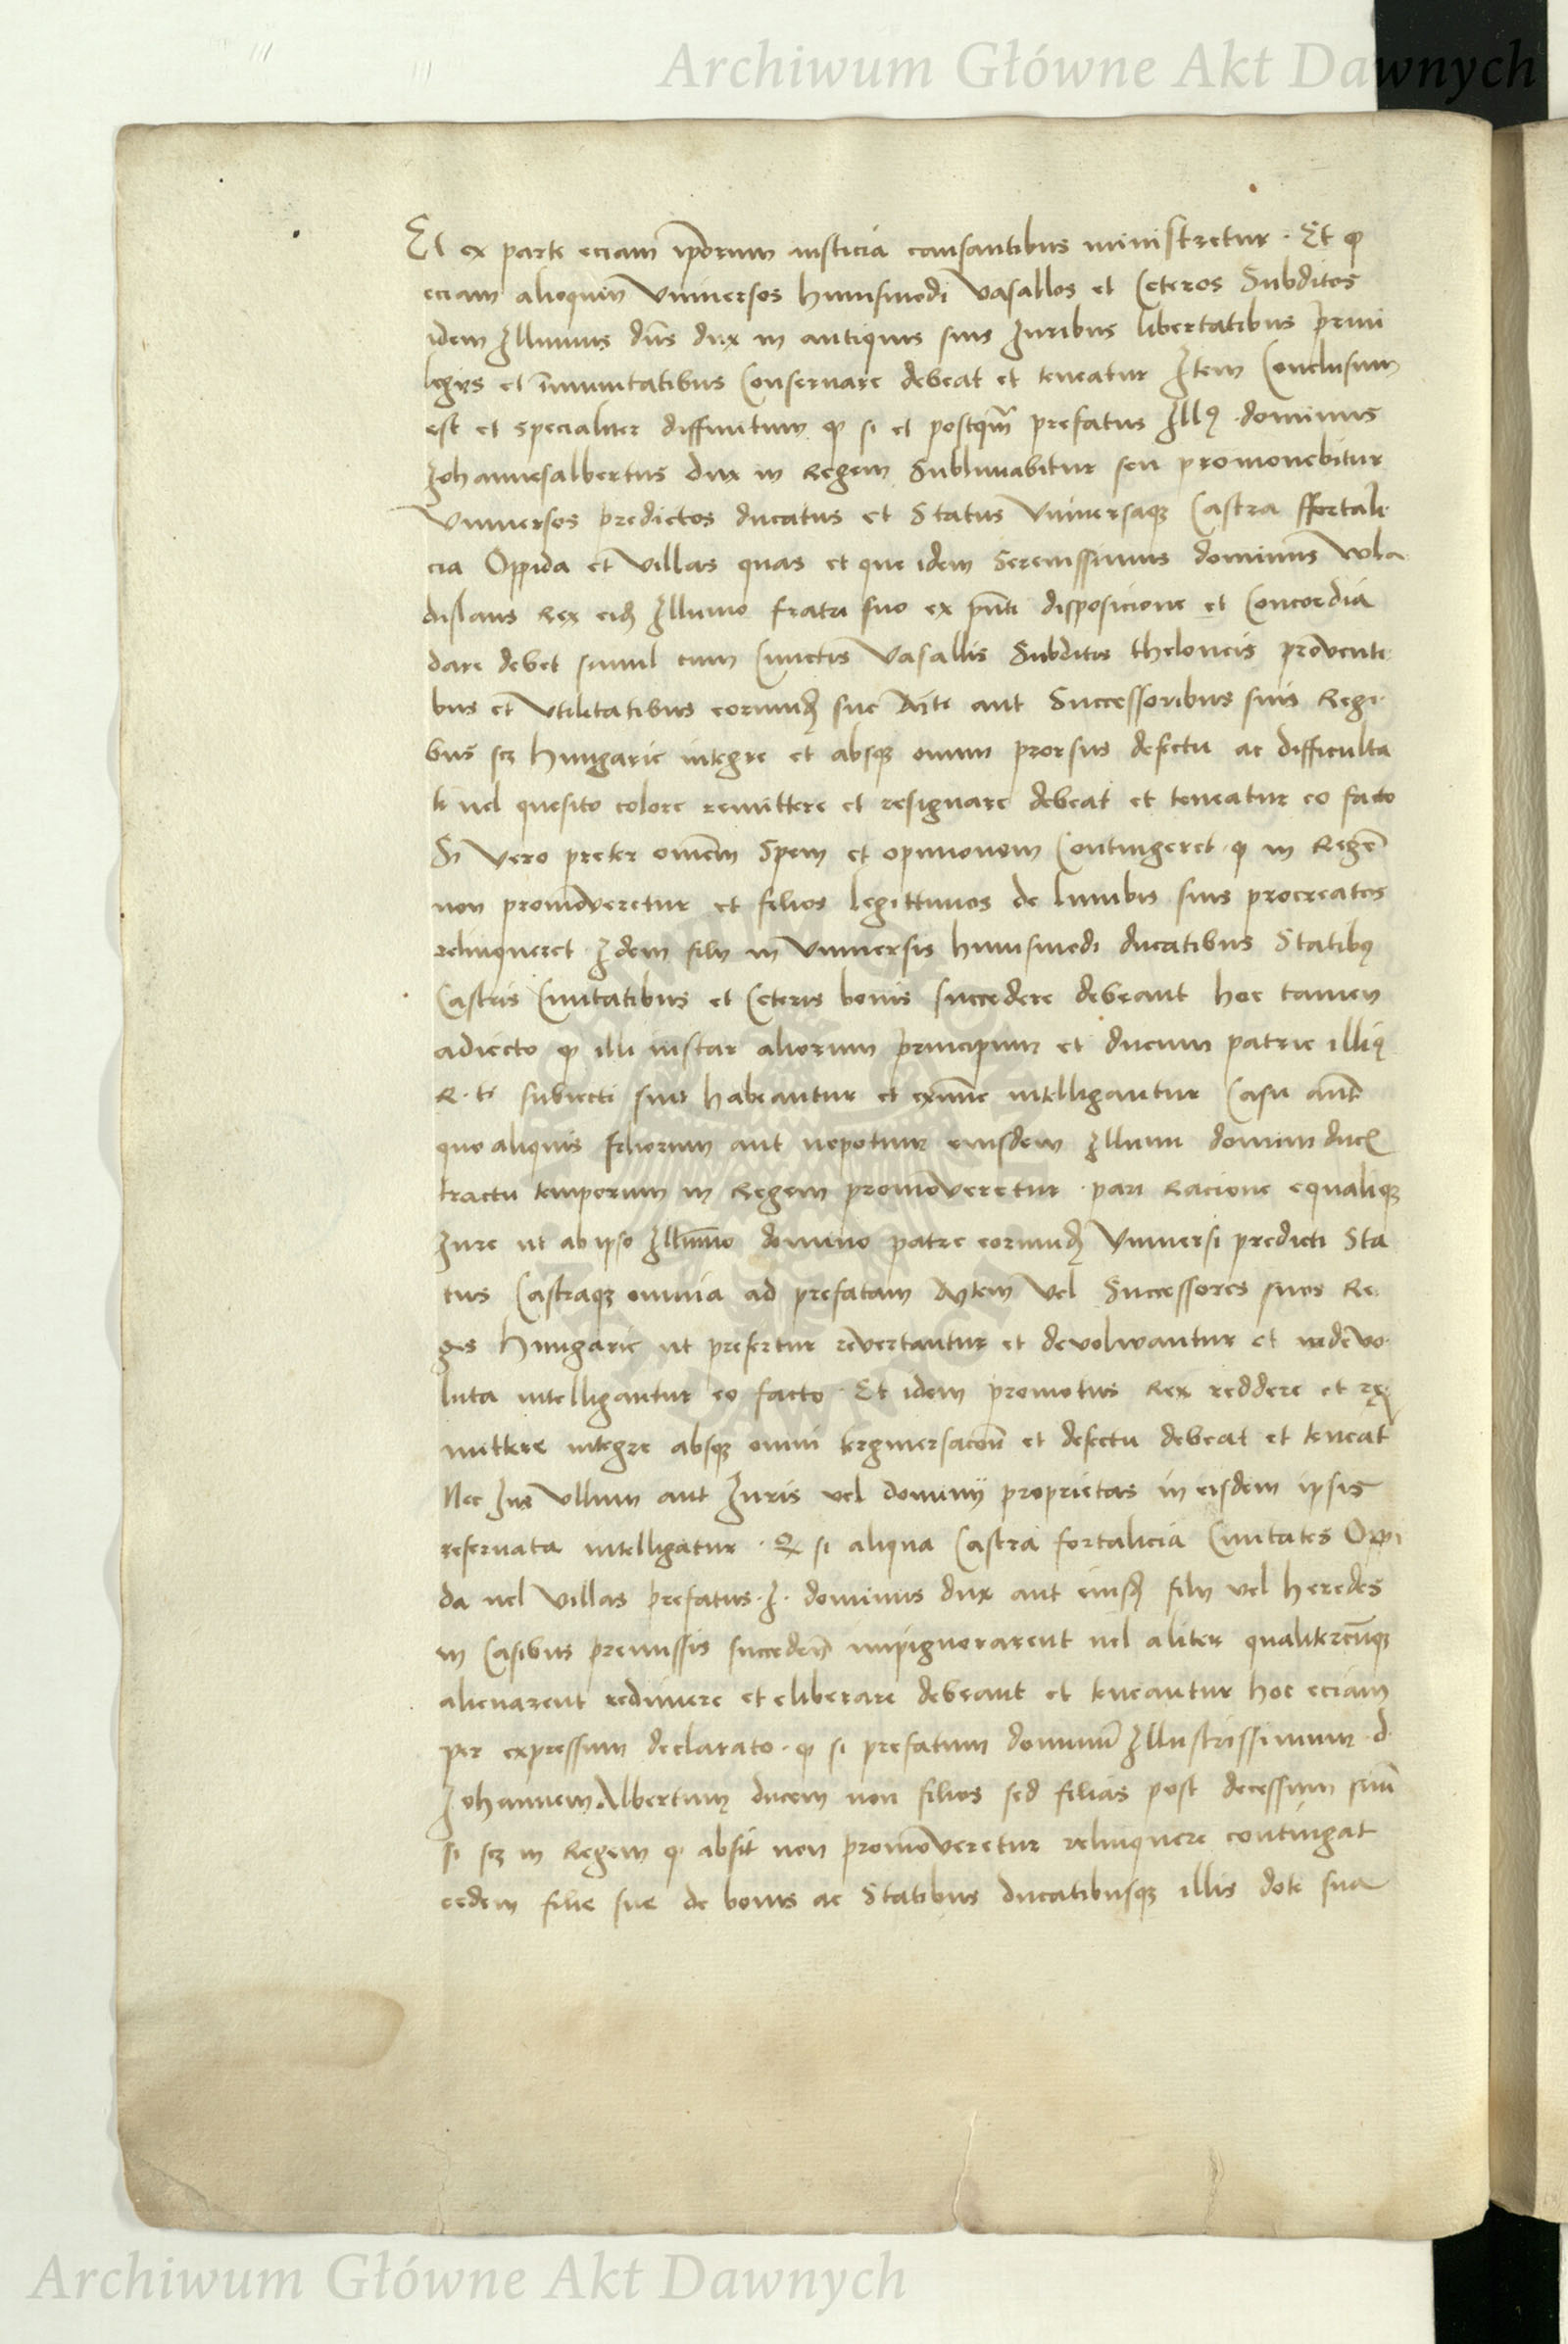 Archiwum Główne Akt Dawnych
Et ex parte eciam ip̄orum iusticia causantibus ministretur · Et ꝙ
eciam alioquin Vniuersos huiusmodi Vasallos et Ceteros Subditos
idem Illumus dn̄s dux in antiquis suis Iuribus libertatibus priui
legijs et īmunitatibus Conseruare debeat et teneatur Item Conclusum
est et specialiter diffinitum ꝙ si et postqm̄ prefatus Illꝰ dominus
Iohannesalbertus dux in Regem Sublimabitur seu promouebitur
Vniuersos predictos ducatus et Status Vniuersaqꝫ Castra ffortali
cia Oppida et Villas quas et que idem Serenissimus dominus Wla
dislaus Rex eidꝫ Illumo fratri suo ex pn̄ti disposicione et Concordia
dare debet simul cum Cunctis Vasallis Subditis theloneis prouenti
bus et Vtilitatibus eorumdꝫ sue Mti aut Successoribus suis Regi
bus scꝫ hungarie integre et absqꝫ omni prorsus defectu ac difficulta
te uel quesito colore remittere et resignare debeat et teneatur eo facto
Si Vero preter omēm Spem et opinionem Contingeret ꝙ in Regē
non promoveretur et filios legittimos de lumbis suis procreatos
relinqueret Idem filij in Vniuersis huiusmodi ducatibus Statibꝰ
Castris Ciuitatibus et Ceteris bonis succedere debeant hoc tamen
adiecto ꝙ illi instar aliorum principum et ducum patrie illiꝰ
R. ti subiecti sint habeantur et extunc intelligantur Casu aut̄
quo aliquis filiorum aut nepotum eiusdem Illumi domini ducꝭ
tractu temporum in Regem promoveretur · pari Racione equaliqꝫ
Iure ut ab ipso Illumo domino patre eorumdꝫ Vniuersi predicti Sta
tus Castraqꝫ omnia ad prefatam Mtem Vel Successores suos Re
ges hungarie ut prefertur revertantur et devolwantur et
luta intelligantur eo facto · Et idem promotus Rex reddere et re
mittere integre absqꝫ omni tergiuersacōne et defectu debeat et teneat
Nec Ius Vllum aut Iuris vel dominij proprietas in eisdem ipsis
reseruata intelligatur · Et si aliqua Castra fortalicia Ciuitates Oppi
da uel Villas prefatus · I · dominus dux aut eiusdꝫ filij vel heredes
in Casibus premissis succeden̄ impignorarent uel aliter qualitercūqꝫ
alienarent redimere et eliberare debeant et teneantur hoc eciam
per expressum declarato · ꝙ si prefatum dominū Illustrissimum · d
Iohannem Albertum ducem non filios sed filias post decessum suū
si scꝫ in Regem ꝙ absit non promoveretur relinquere contingat
eedem filie sue de bonis ac Statibus ducatibusqꝫ illis dote sua
Archiwum Główne Akt Dawnych